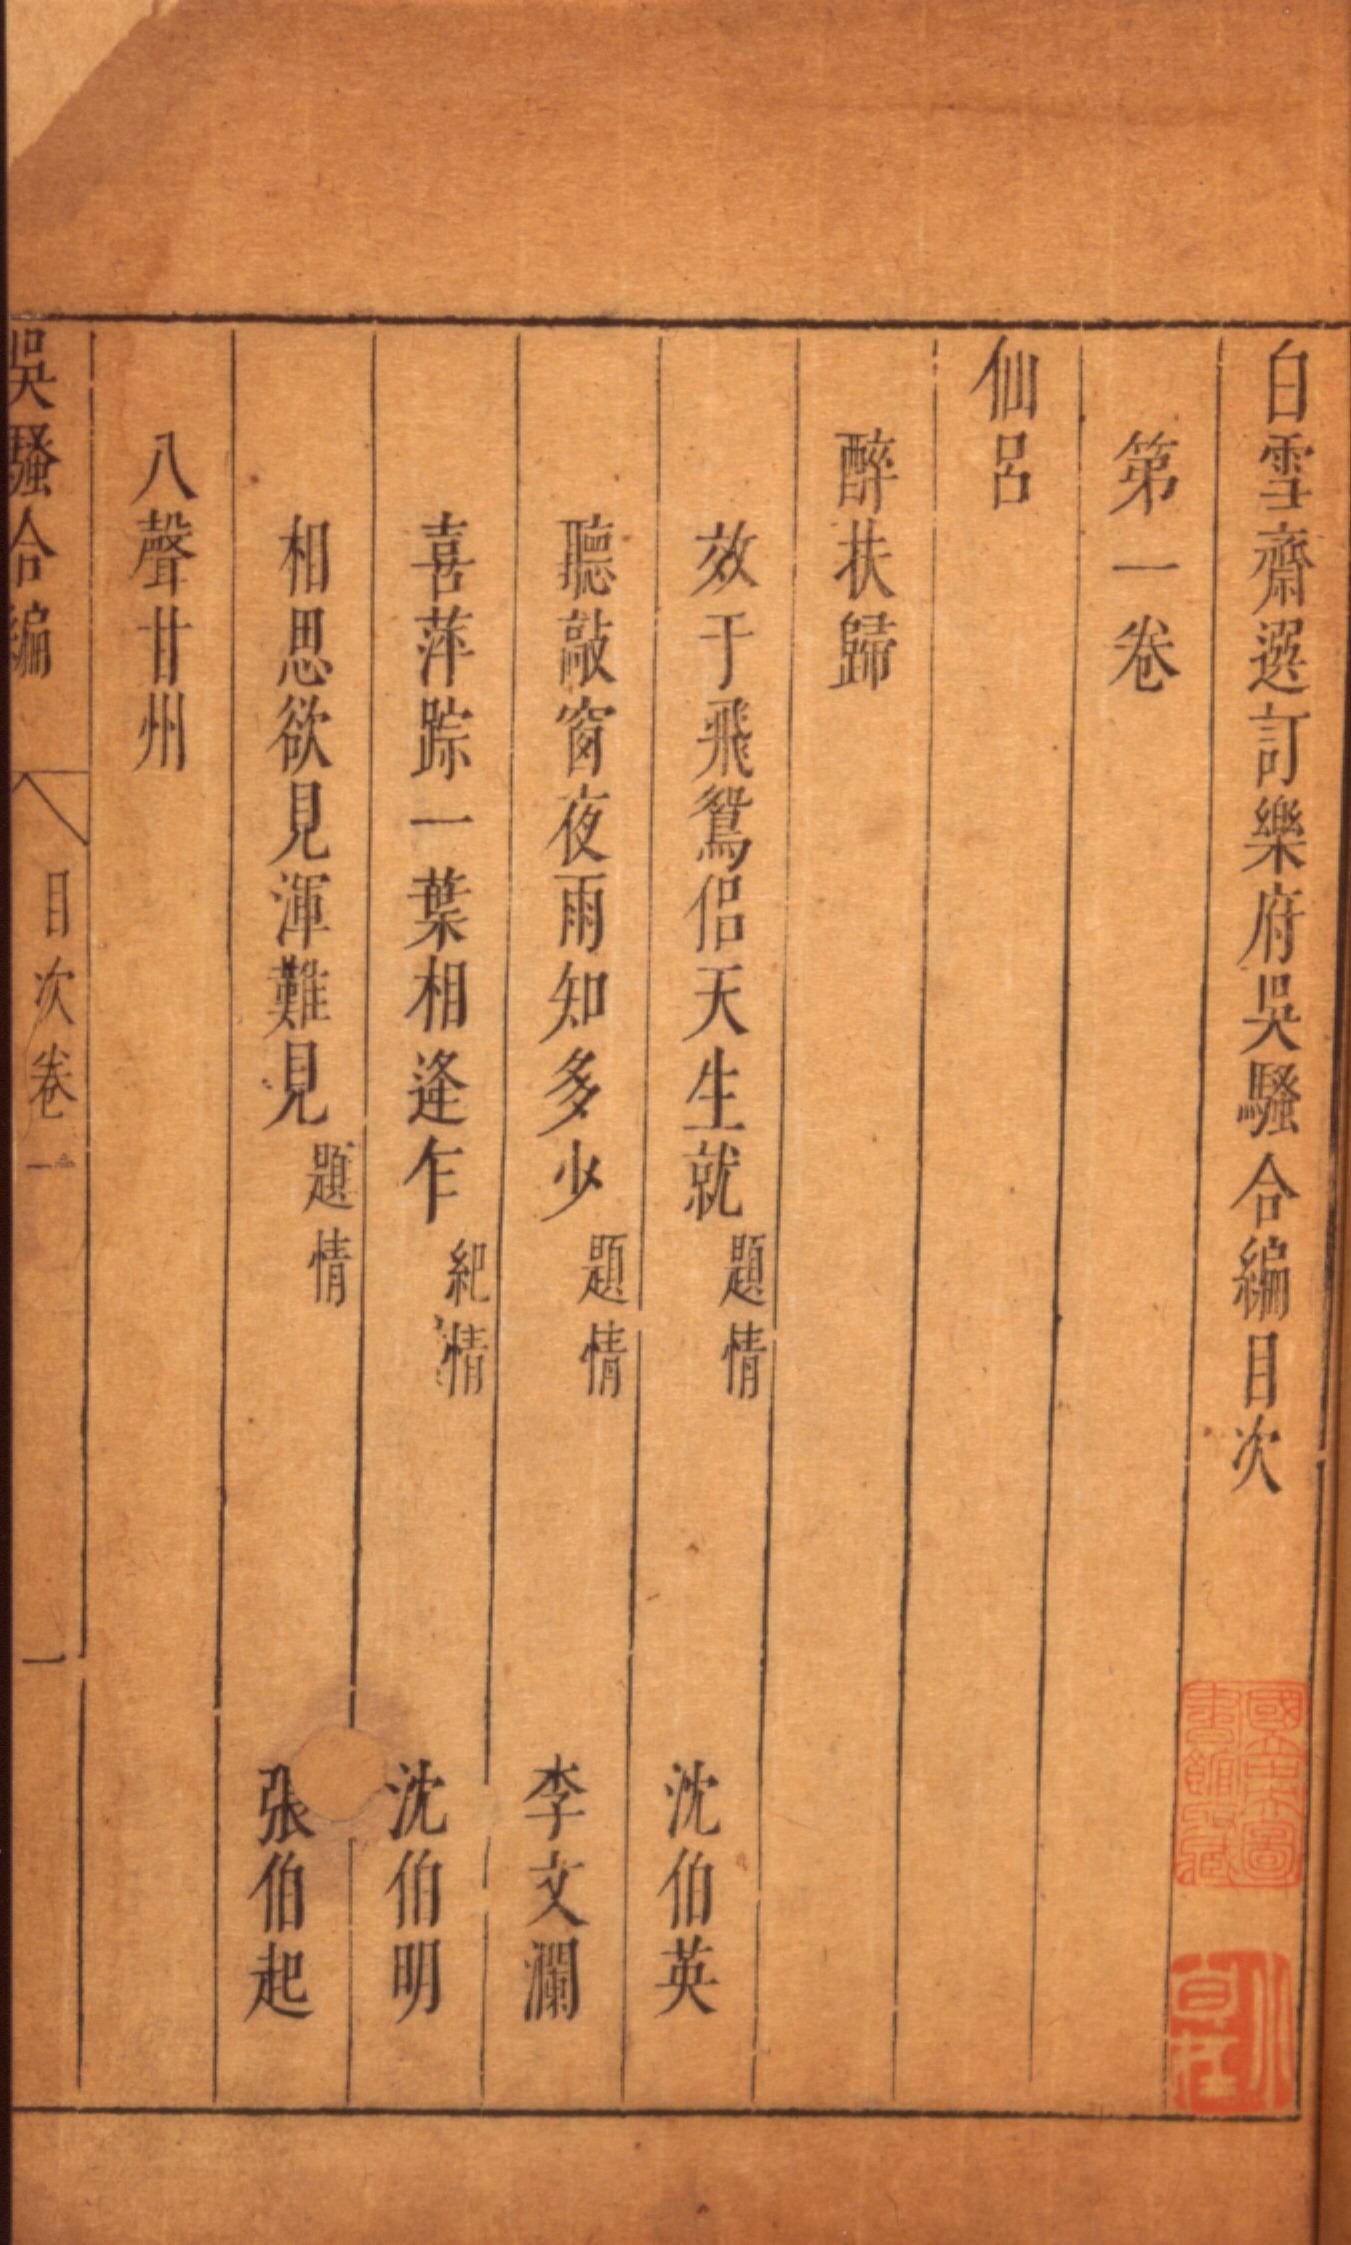 白雪齋選訂樂府吳騷合編目次
第一卷
仙呂
醉扶歸
效于飛鴛侶天生就 題情 沈伯英
聽敲窗夜雨知多少 題情 李文瀾
喜萍踪一葉相逢乍 紀情 沈伯明
相思欲見渾難見 題情 張伯起
八聲甘州
吳騷合編 目次卷一 一
國立中央圖書館收藏